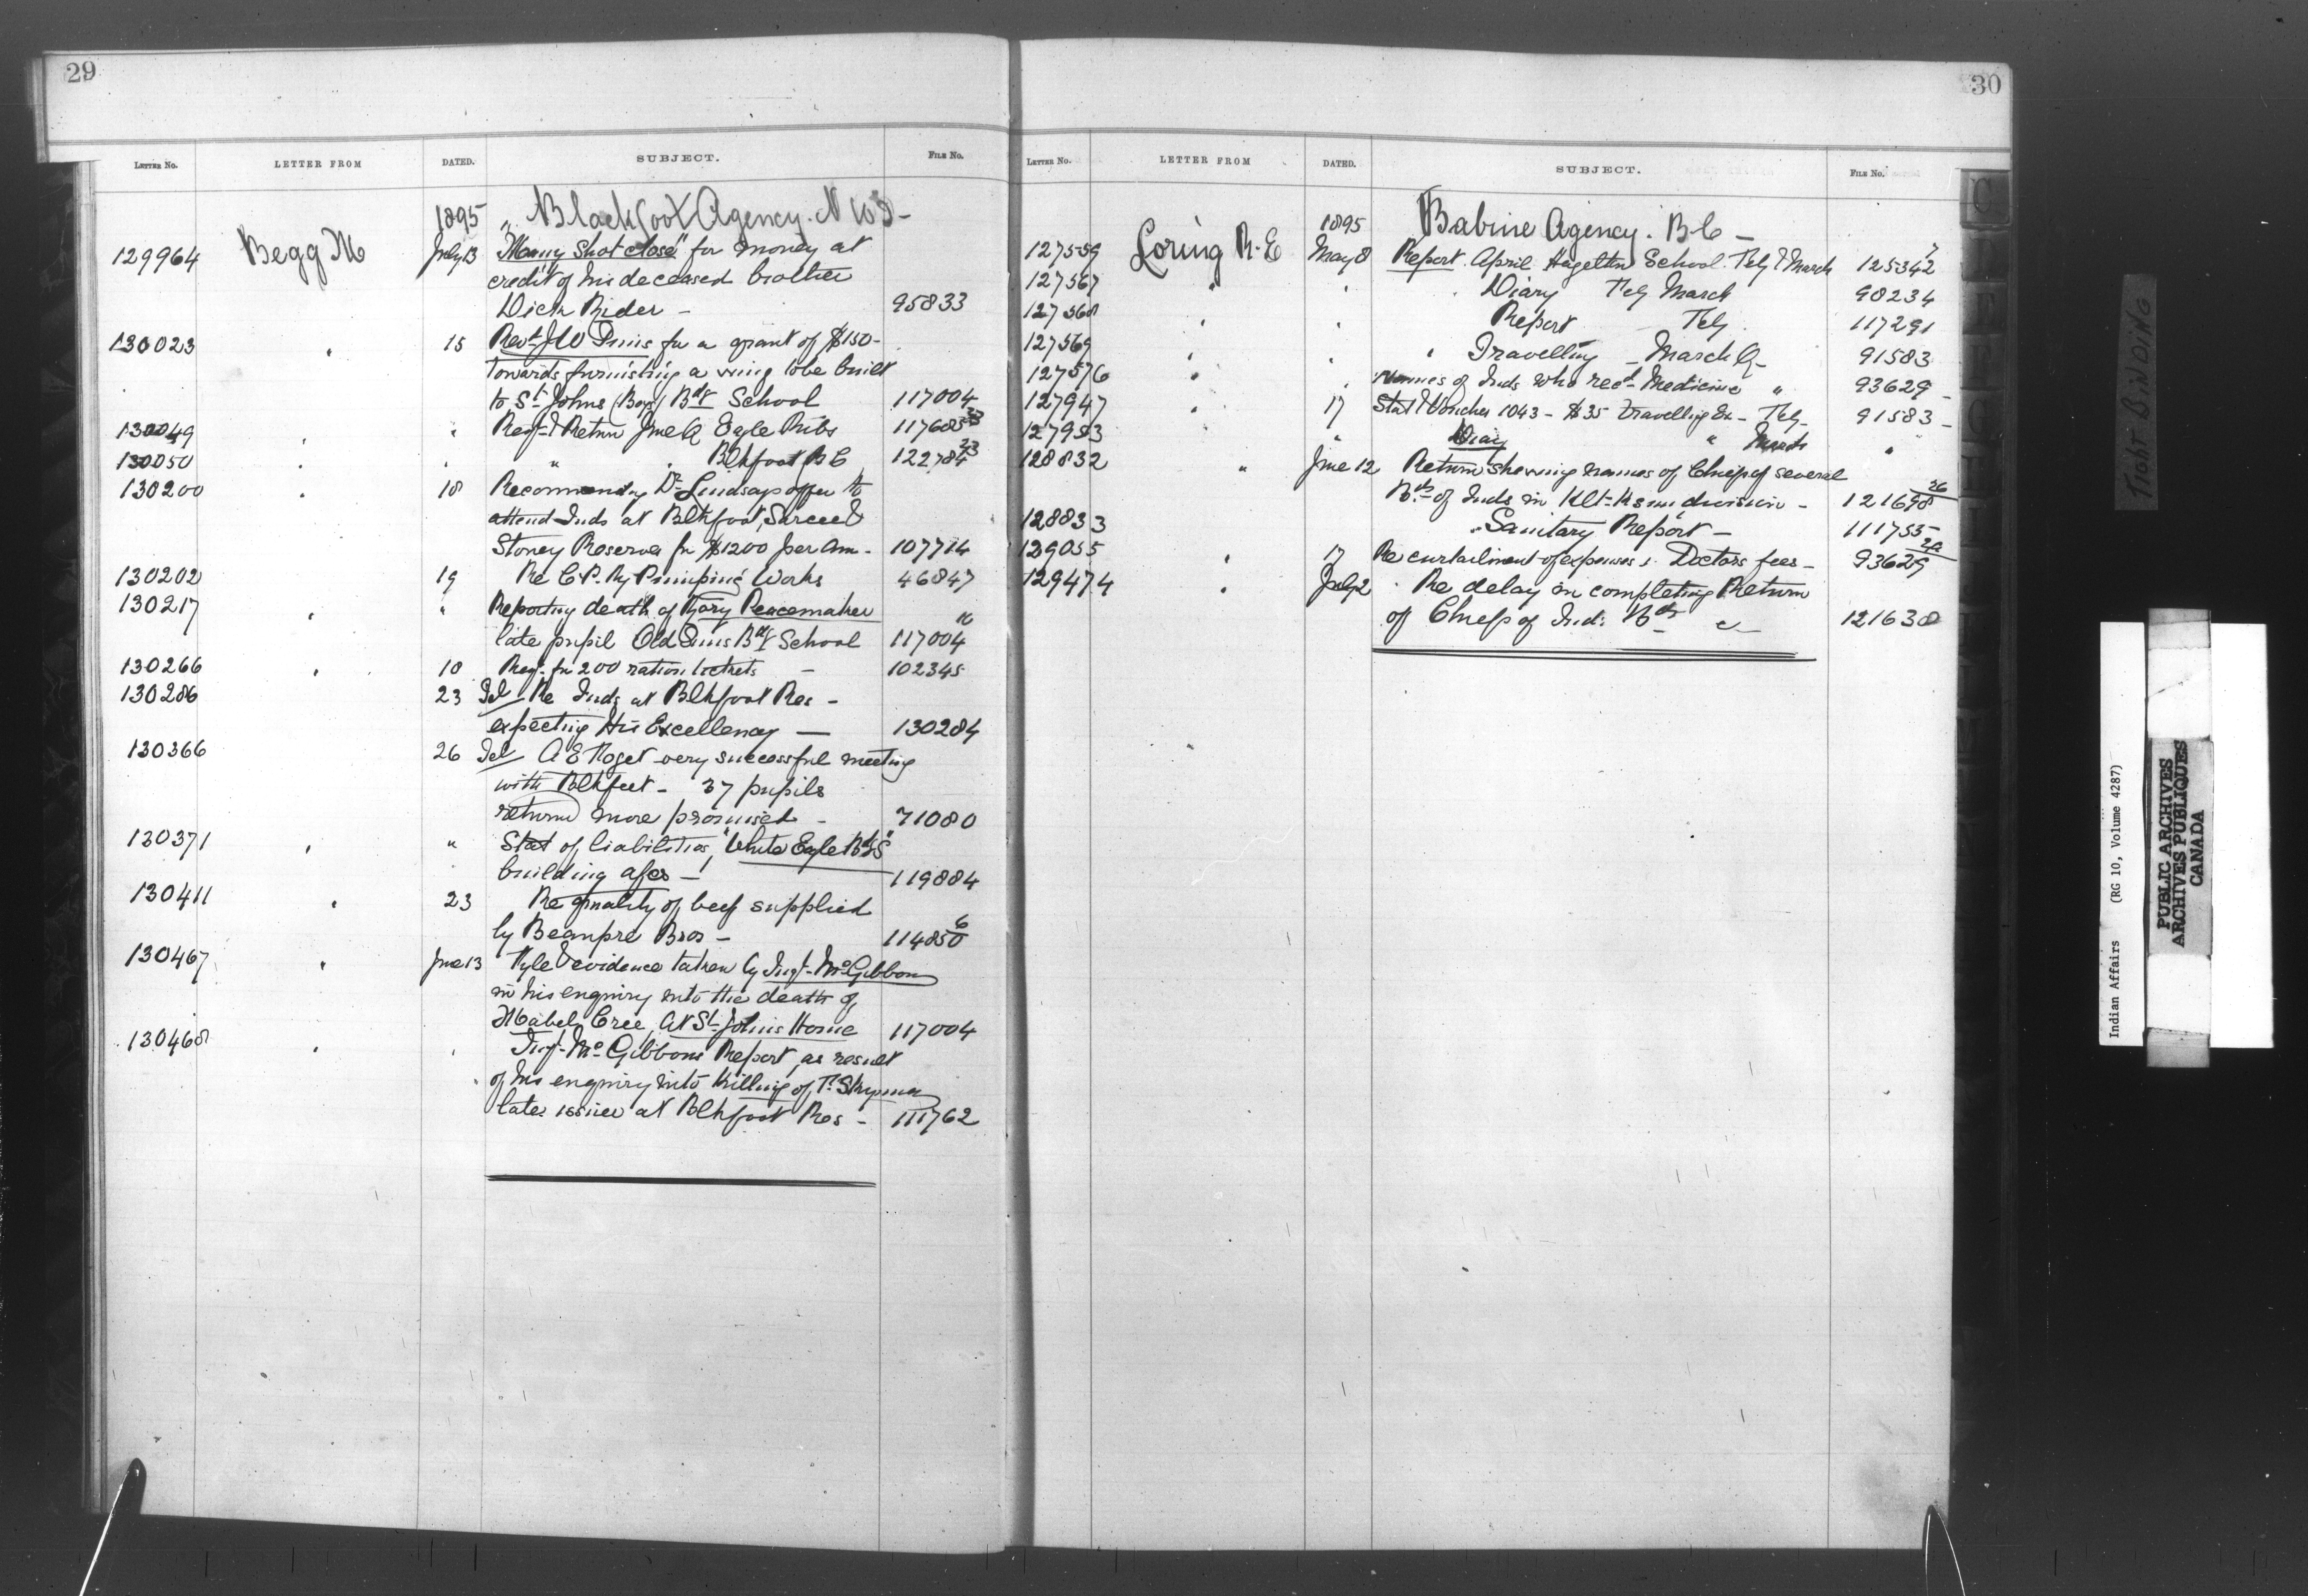 29
LETTER No. LETTER FROM DATED. SUBJECT. FILE No.
1895 Blackfoot Agency. N W T -
129964 Begg M July 13 "Many Shot close" for money at
credit of his deceased brother
Dick Rider - 95833
130023 " 15 Revd J W Tims for a grant of $150-
towards furnishing a wing to be built
to St Johns (Boys) Bdg School 117004
130049 " " Reqn & Return June Q Eagle Ribs
130050 " " " " Blkfoot
130200 " 18 Recommending Dr Lindsays offer to
attend Inds at Blkfoot, Sarcee &
Stoney Reserves for $1200 per am - 107714
130202 19 Re C.P. Ry Pumping Works 46847
130217 " " Reporting death of Mary Peacemaker
late pupil Old Suns Bdg School 117004
130266 " 18 Req. for 200 ration tickets - 102345
130286 23 Tel Re Inds at Blkfoot Res -
expecting His Excellency - 130284
130366 26 Tel A E Forget very successful meeting
with Blkfeet - 37 pupils
return more promised - 71080
130371 " " Stat of liabilities, "White Eagle Bdg S"
building - 119884
130411 " 23 Re quality of beef supplied
by Beaupre Bros - 114850 6
130467 " June 13 evidence taken by Insp. McGibbon
in his enquiry into the death of
Mabel Cree, at St Johns Home 117004
130468 " " Insp. McGibbons Report, as result
of his enquiry into Killing of Skynner
late issuer at Blkfoot Res - 111762
30
LETTER No. LETTER FROM DATED. SUBJECT. FILE No.
1895 Babine Agency. B C -
127559 Loring R. E May 8 Report April Hazelton School. Feby & March 125342 7
127567 " " Diary Feby March 90234
127568 " " Report Feby 117291
127569 " " " Travelling March Q - 91583
127576 " " Names of Inds who recd Medicine " 93629
127947 " 17 Stat & Voucher 1043 - $35 travelling Ex - Feby - 91583
127953 " Diary " March "
128832 " June 12 Return shewing names of Chiefs of several
Bds of Inds in division - 121698 26
128833 " Sanitary Report - 111755
129055 " 17 Re curtailment of expenses & Doctors fees - 93629
129474 " July 2 Re delay in completing Return
of Chiefs of Ind. Bds 121638
TIGHT BINDING
Indian Affairs (RG 10, Volume 4287)
PUBLIC ARCHIVES
ARCHIVES PUBLIQUES
CANADA